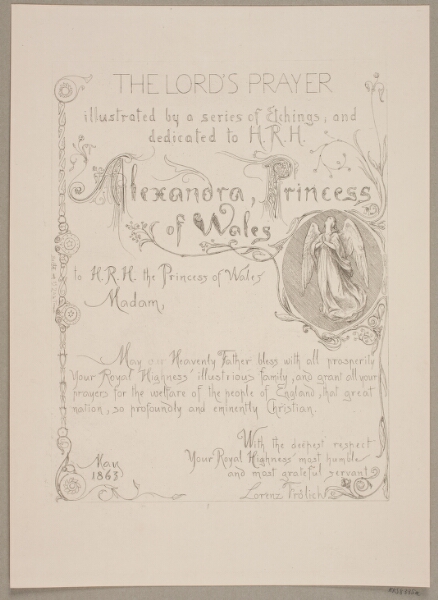 THE LORD'S PRAYER
illustrated by a series of Etchings, and
dedicated to H.R.H.
Alexandra, Princess
of Wales
to H.R.H. the Princess of Wales
Madam,
May our Heavenly Father bless with all prosperity
Your Royal Highness' illustrious family, and grant all your
prayers for the welfare of the people of England, that great
nation, so profoundly and eminently Christian.
With the deepest respect
Your Royal Highness' most humble
and most grateful servant
Lorenz Frölich
May
1863